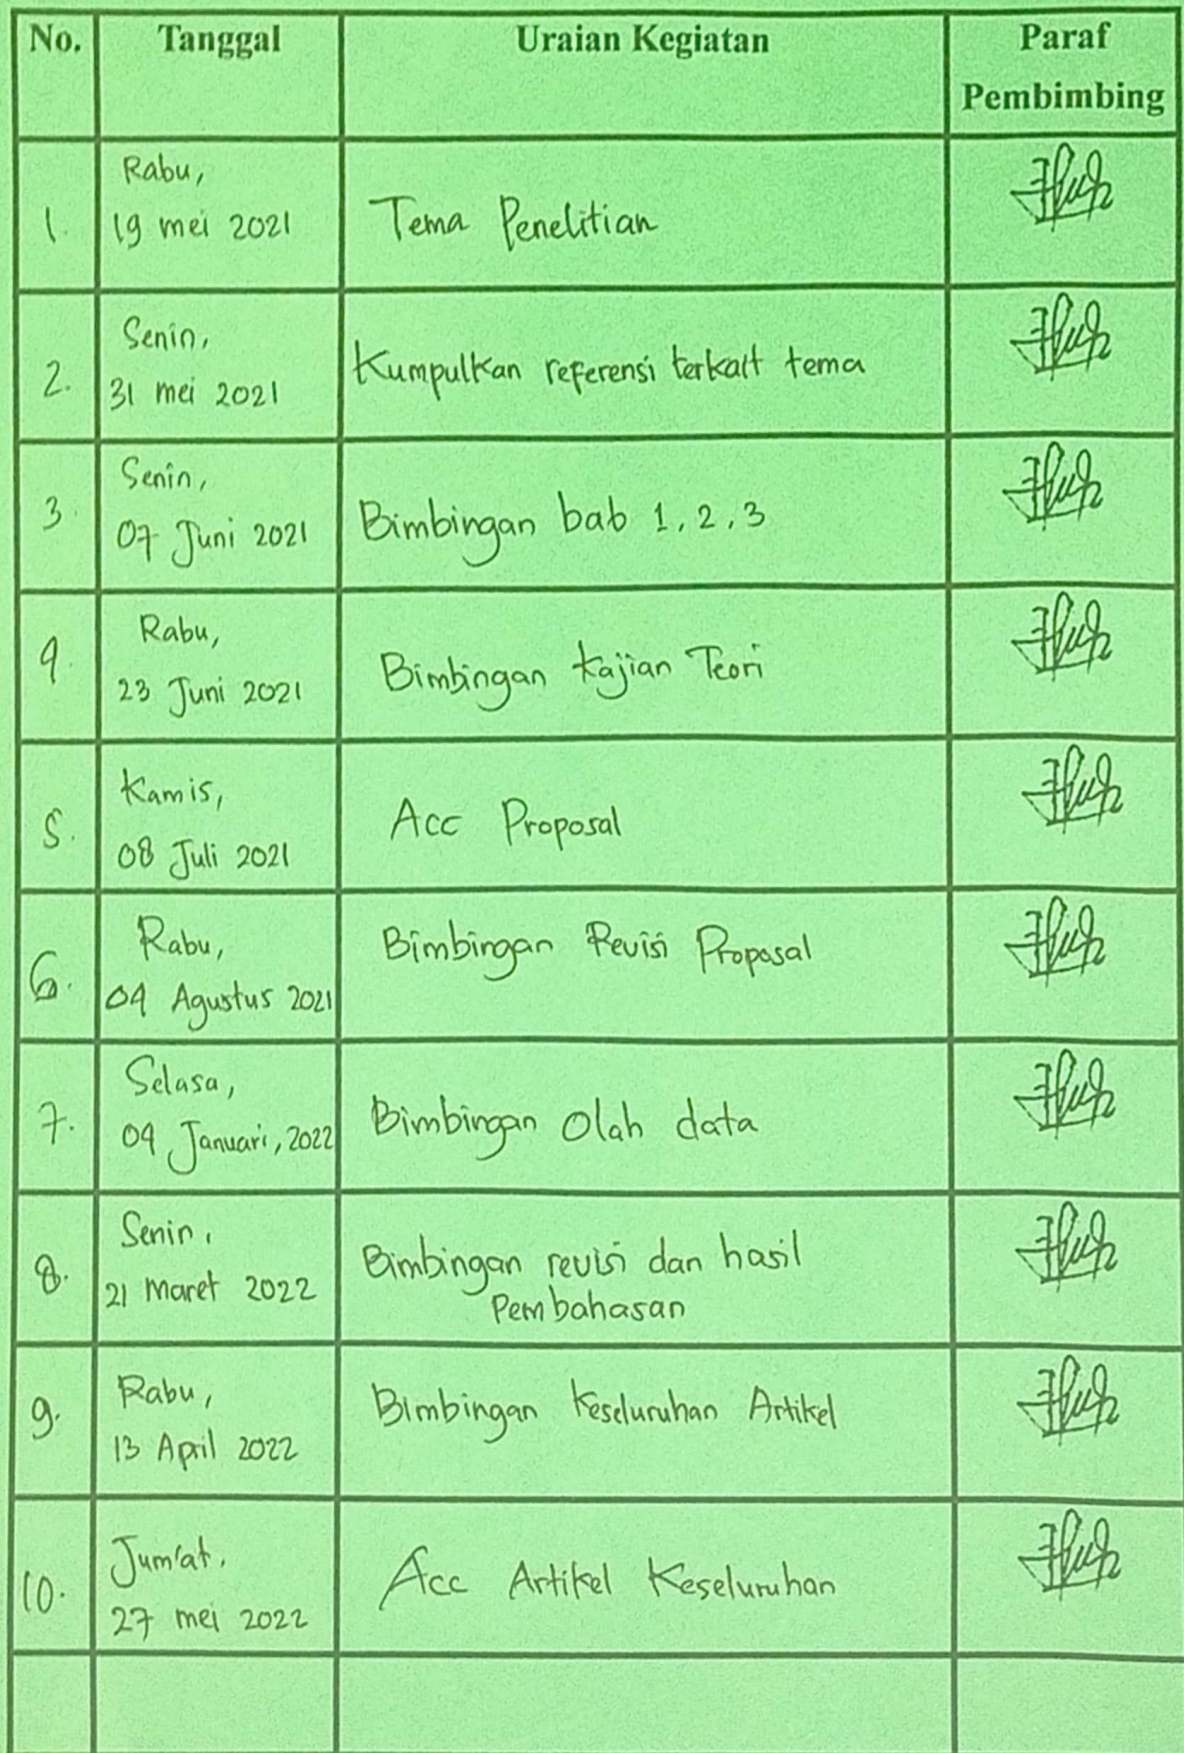 No. Tanggal Uraian Kegiatan Paraf
Pembimbing
Rabu,
1. 19 mei 2021 Tema Penelitian
Senin,
2. 31 mei 2021 Kumpulkan referensi terkait tema
Senin,
3. 07 Juni 2021 Bimbingan bab 1, 2, 3
Rabu,
4. 23 Juni 2021 Bimbingan kajian Teori
Kamis,
5. 08 Juli 2021 Acc Proposal
Rabu,
6. 04 Agustus 2021 Bimbingan Revisi Proposal
Selasa,
7. 04 Januari, 2022 Bimbingan Olah data
Senin,
8. 21 Maret 2022 Bimbingan revisi dan hasil
Pembahasan
Rabu,
9. 13 April 2022 Bimbingan Keseluruhan Artikel
Jum'at,
10. 27 mei 2022 Acc Artikel Keseluruhan